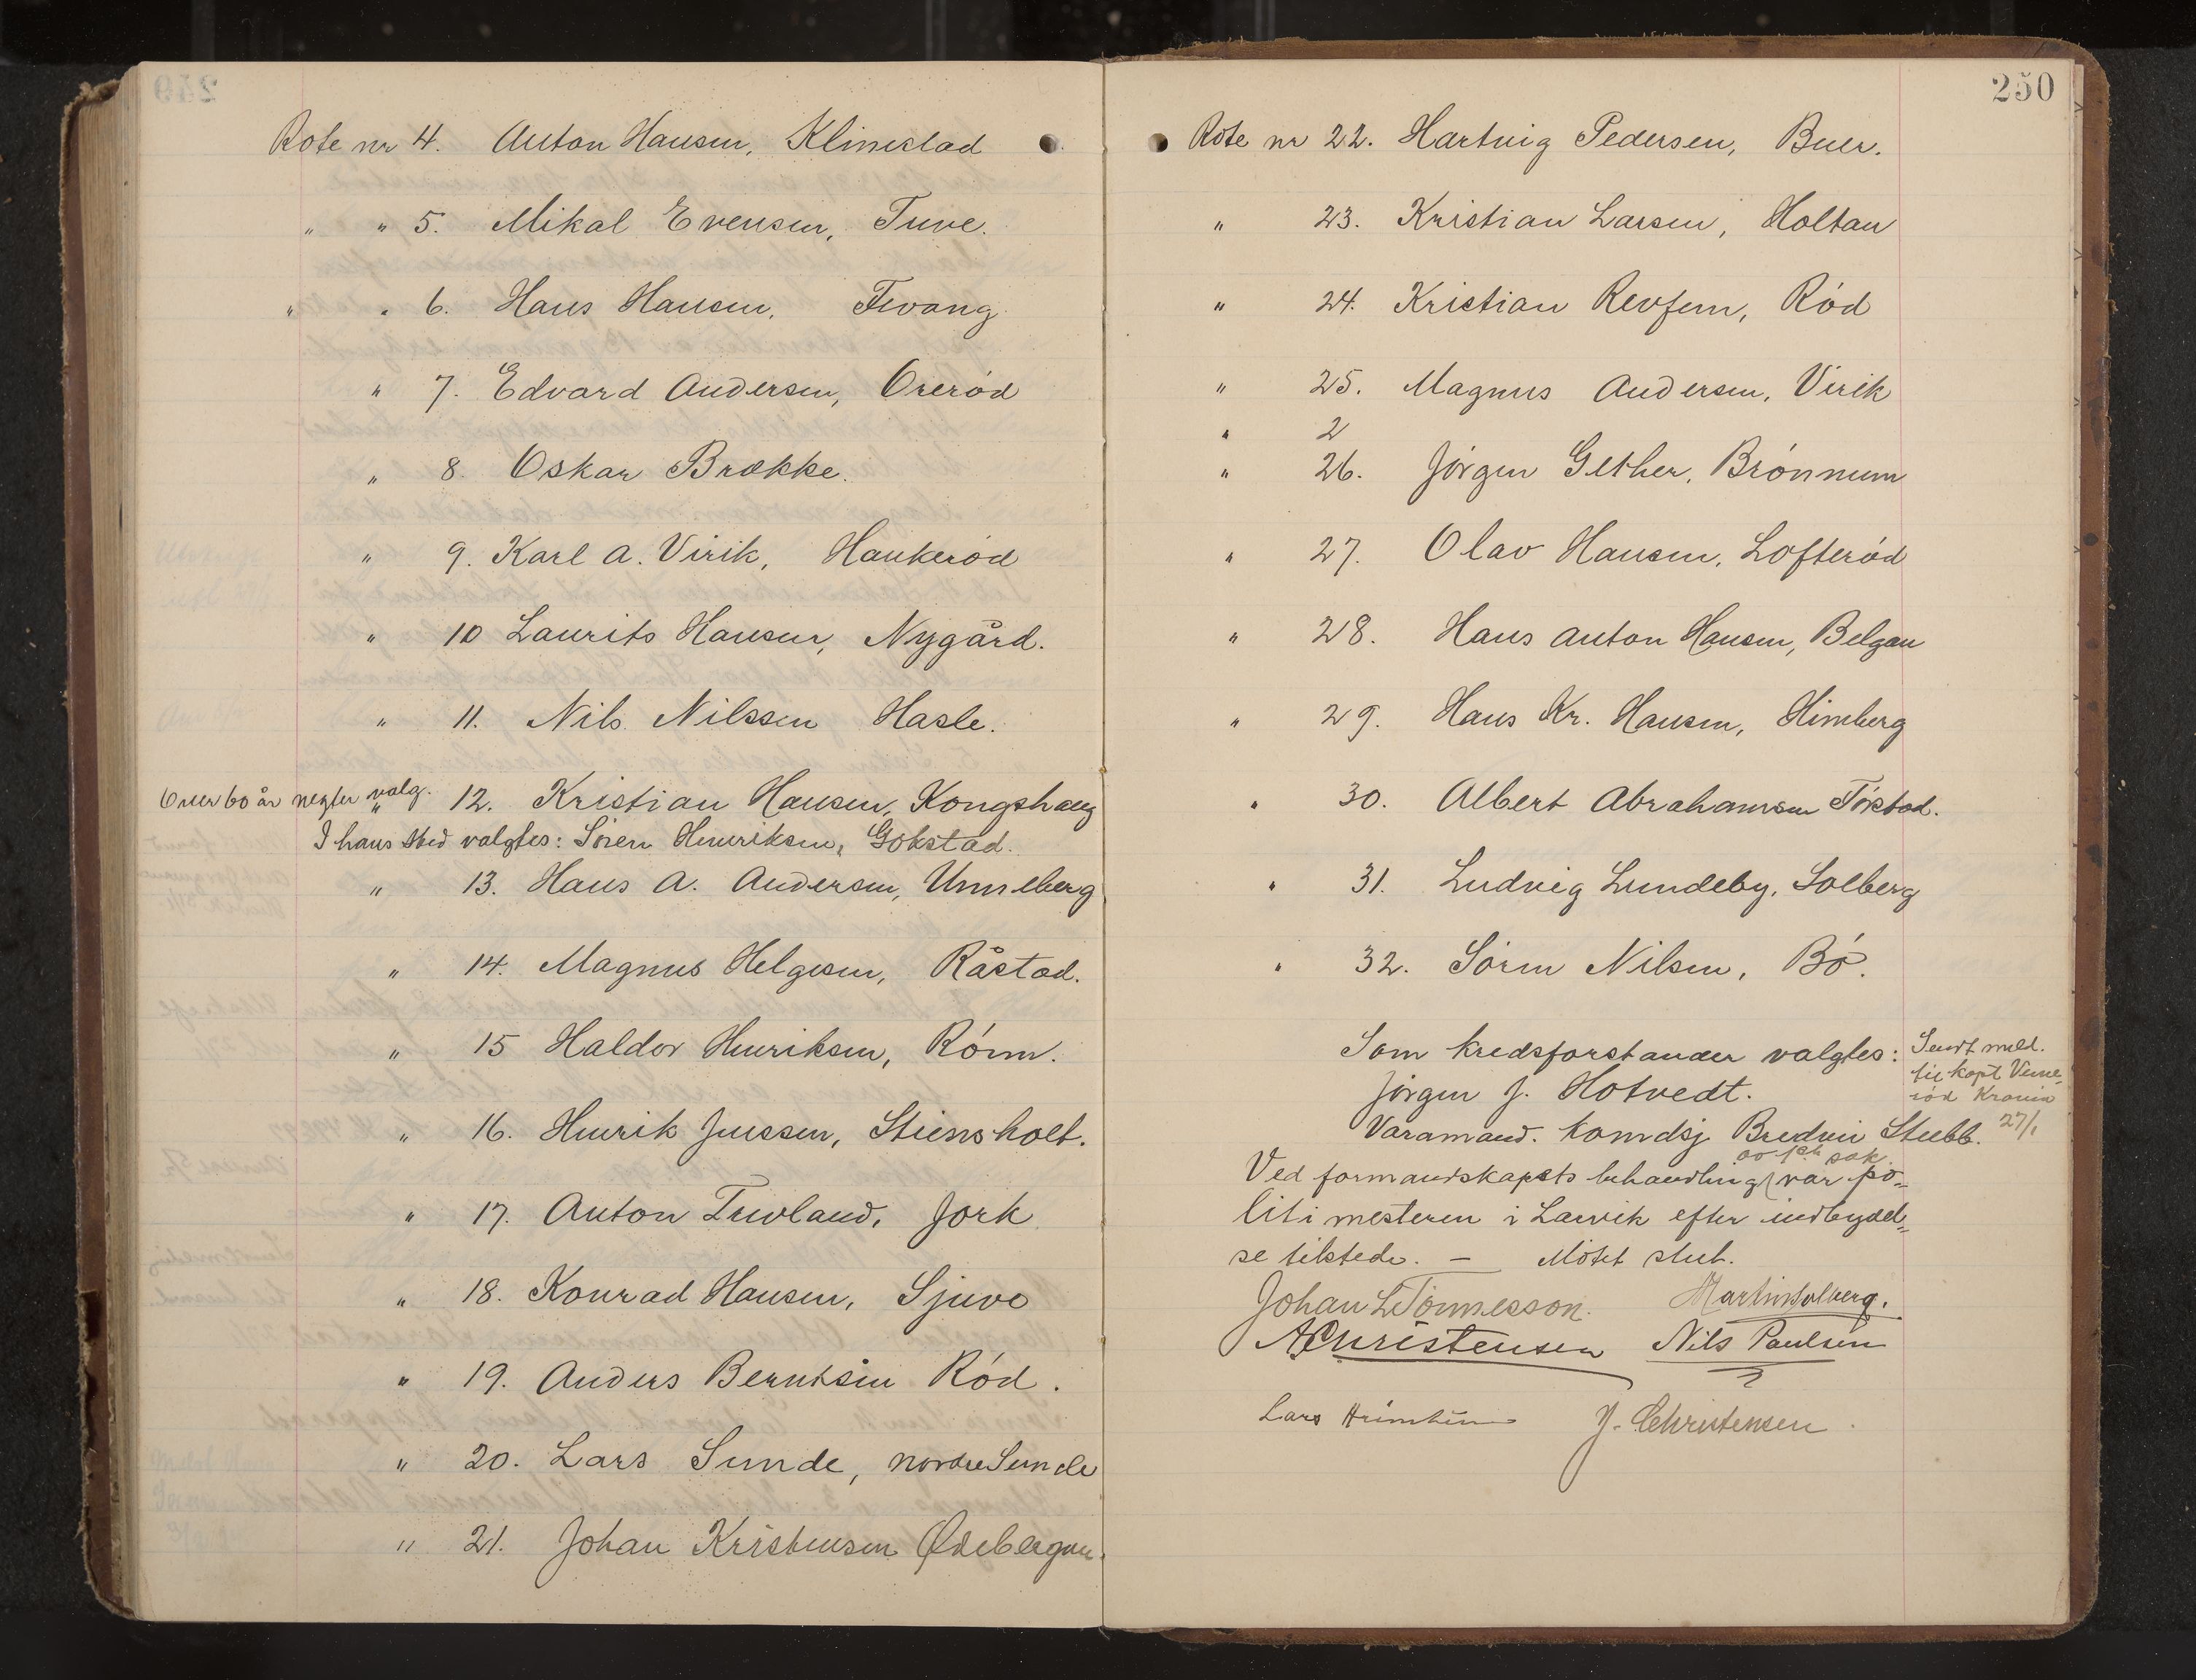 Rote nr 4. Anton Hansen, Klinestad
" " 5. Mikal Evensen, Tuve.
" " 6. Hans Hansen, Fevang
" 7. Edvard Andersen, Orerød
" 8. Oskar Brække.
" 9. Karl A. Virik, Haukerød
" 10 Laurits Hansen, Nygård.
" 11. Nils Nilssen Hasle.
Over 60 år negter valg. " 12. Kristian Hansen, Kongshaug
I hans sted valgtes: Søren Henriksen, Gokstad.
" 13. Hans A. Andersen, Unneberg
" 14. Magnus Helgesen, Råstad.
" 15 Haldor Henriksen, Rómm.
" 16. Henrik Jenssen, Stiensholt.
" 17. Anton Fevland, Jork
" 18. Konrad Hansen, Sjuve
" 19. Anders Berntsen Ród.
" 20. Lars Sunde, nordre Sunde
" 21. Johan Kristensen Ødebergan.
250
Rote nr 22. Hartvig Pedersen, Buer.
" 23. Kristian Larsen, Holtan
" 24. Kristian Revfem, Ród
" 25. Magnus Andersen, Virik
" 2
" 26. Jórgen Gether, Brónnum
" 27. Olav Hansen, Lofteród
" 28. Hans Anton Hansen, Belgau
" 29. Hans Kr. Hansen, Himberg
" 30. Albert Abrahamsen Tókstad.
" 31. Ludvig Lundeby, Solberg
" 32. Sóren Nilsen, Bó.
Som kredsforstander valgtes:
Jórgen J. Hotvedt.
Varamand. komdsj Bredvei Stubb.
Sendt meld.
til kapt Veme-
ród Kronin
27/1
av 1ste sak
Ved formandskapets behandling var po-
litimesteren i Larvik efter indbydel-
se tilstede. — Mótet slut.
Johan L Tónnesson. Martin Solberg.
A Christensen Nils Paulsen
Lars J. Christensen.